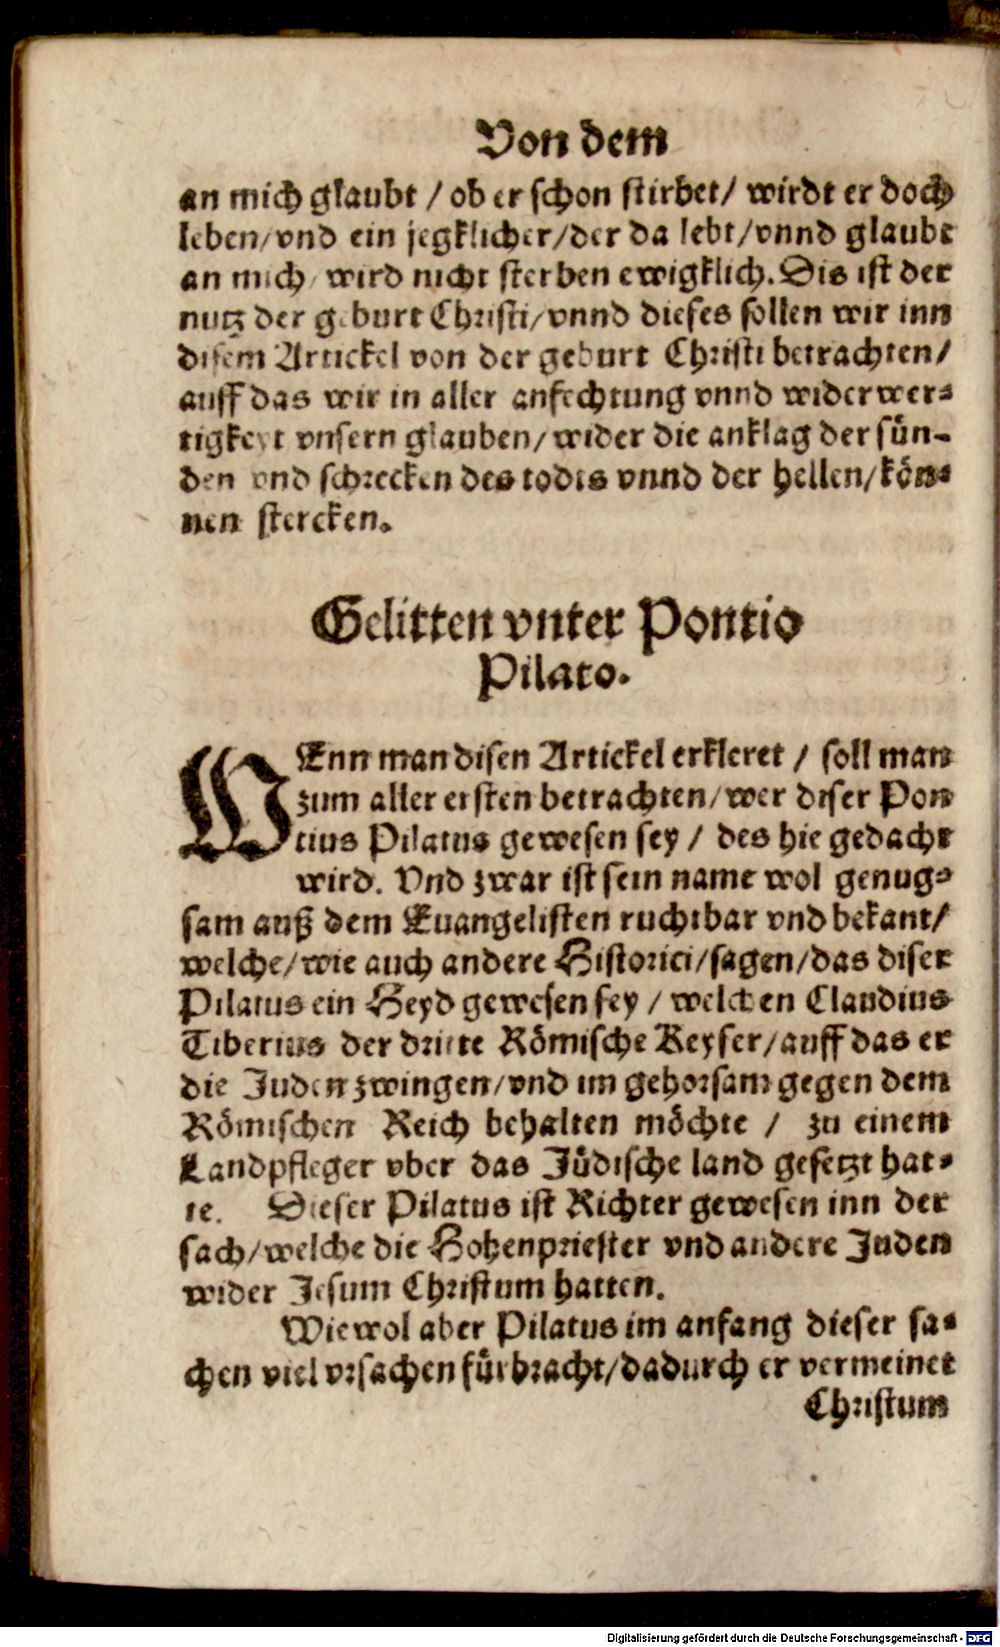 Von dem
an mich glaubt / ob er schon stirbet / wirdt er doch
leben / vnd ein jegklicher / der da lebt / vnnd glaubt
an mich / wird nicht sterben ewigklich. Dis ist der
nutz der geburt Christi / vnnd dieses sollen wir inn
disem Artickel von der geburt Christi betrachten /
auff das wir in aller anfechtung vnnd widerwer⸗
tigkeyt vnsern glauben / wider die anklag der sün⸗
den vnd schrecken des todes vnnd der hellen / kön⸗
nen stercken.
Gelitten vnter Pontio
Pilato.
WEnn man disen Artickel erkleret / soll man
zum aller ersten betrachten / wer diser Pon
tius Pilatus gewesen sey / des hie gedacht
wird. Vnd zwar ist sein name wol genug⸗
sam auß dem Euangelisten ruchtbar vnd bekant /
welche / wie auch andere Historici / sagen / das diser
Pilatus ein Heyd gewesen sey / welchen Claudius
Tiberius der dritte Römische Keyser / auff das er
die Juden zwingen / vnd im gehorsam gegen dem
Römischen Reich behalten möchte / zu einem
Landpfleger vber das Jüdische land gesetzt hat⸗
te. Dieser Pilatus ist Richter gewesen inn der
sach / welche die Hohenpriester vnd andere Juden
wider Jesum Christum hatten.
Wiewol aber Pilatus im anfang dieser sa⸗
chen viel vrsachen fürbracht / dadurch er vermeinet
Christum
Digitalisierung gefördert durch die Deutsche Forschungsgemeinschaft - DFG